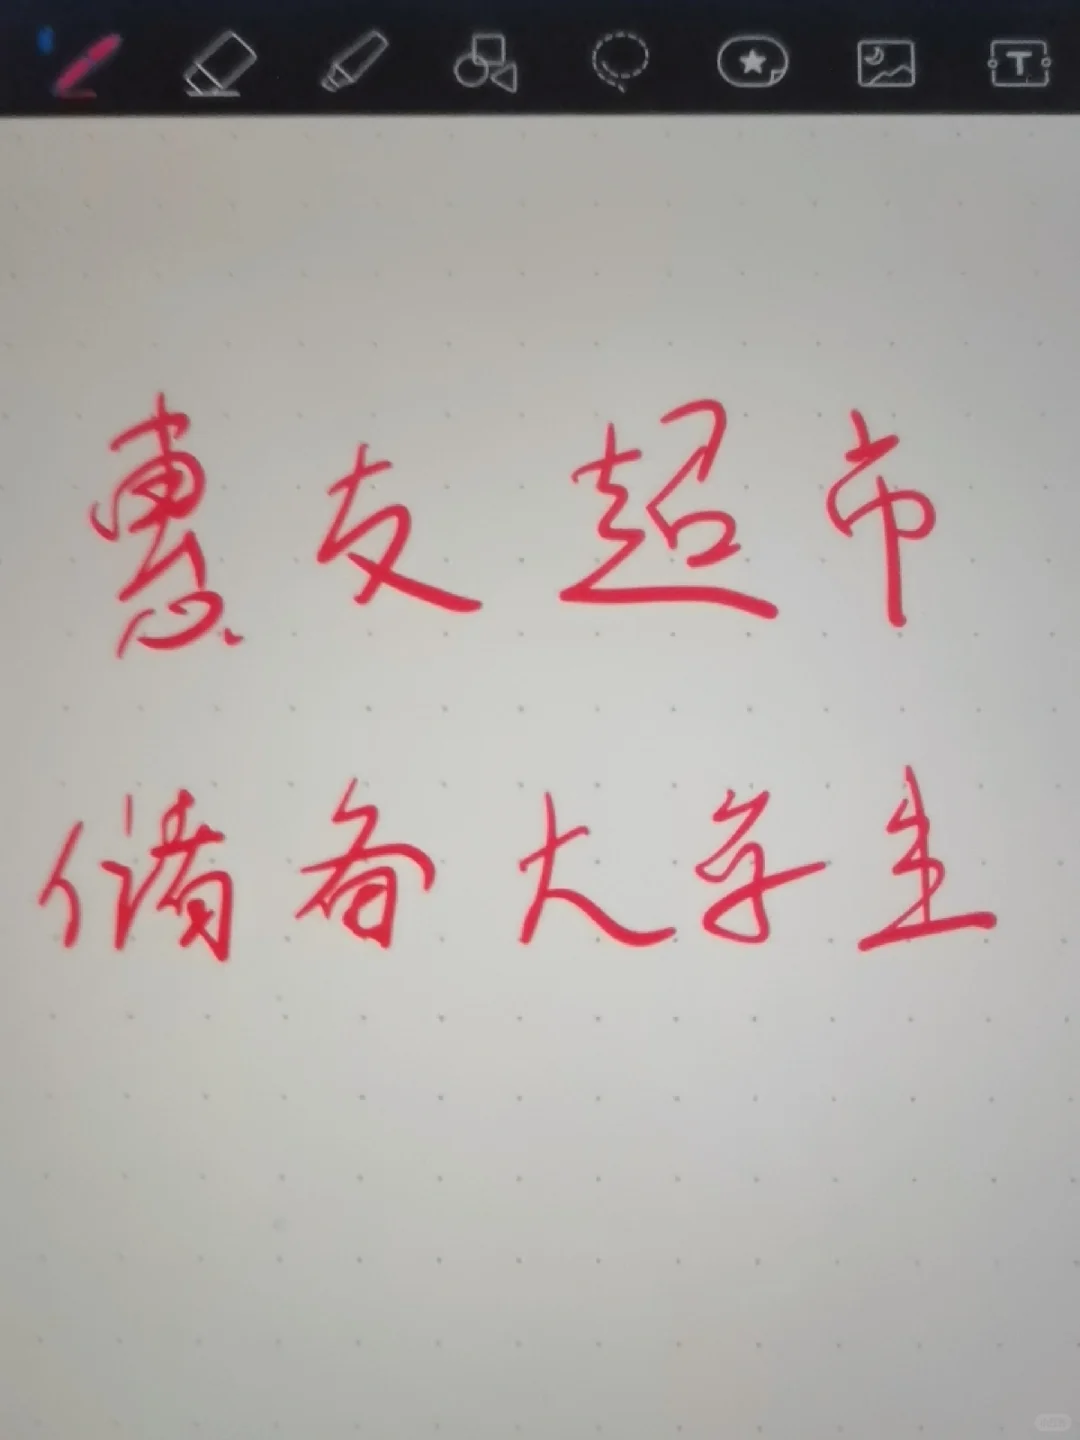 惠友超市
储备大学生